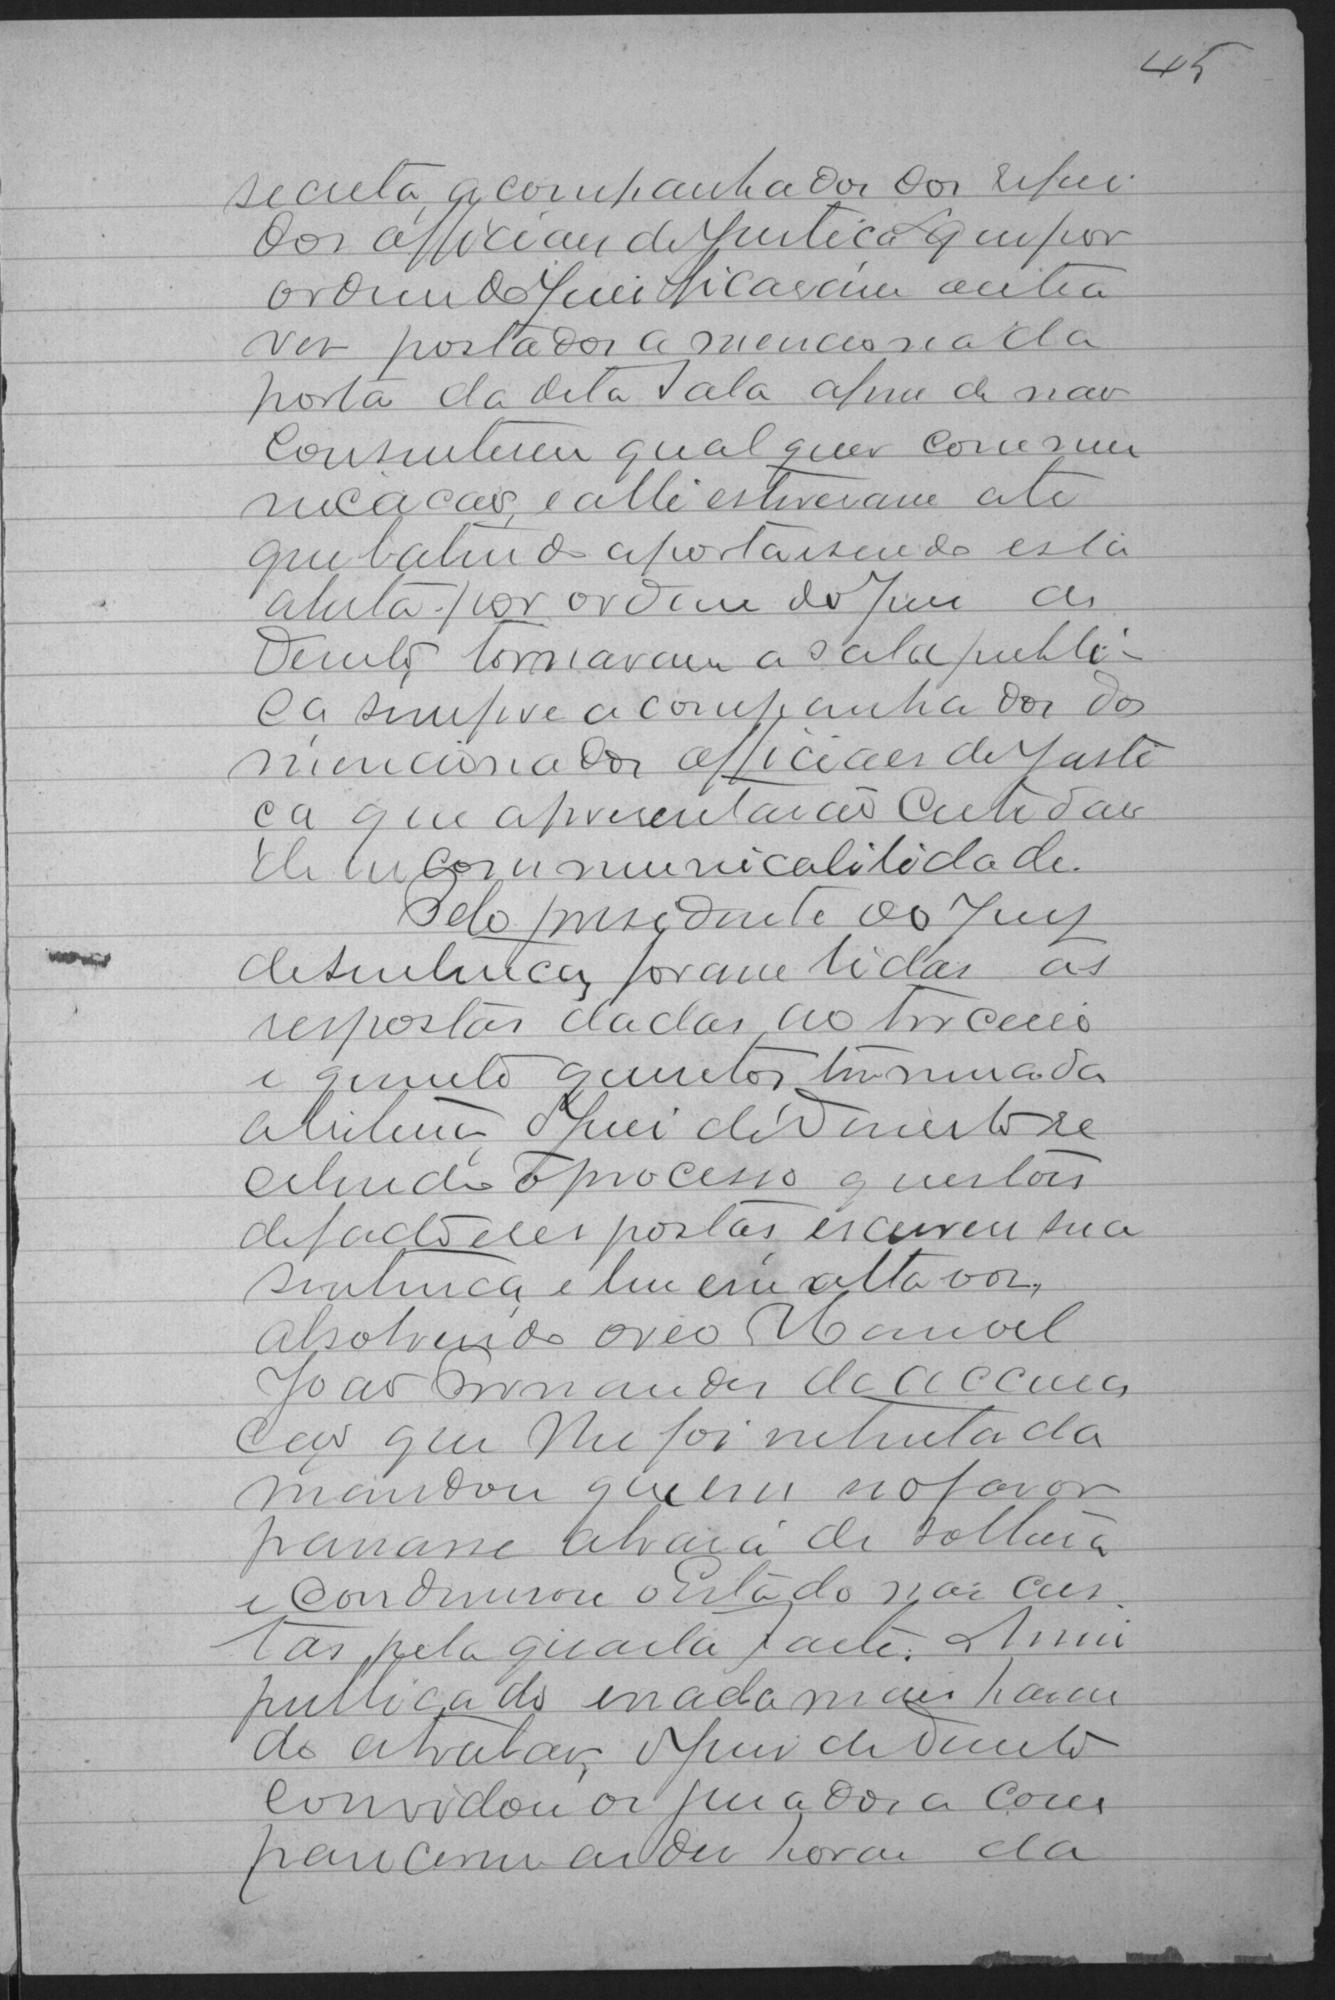 45
secreta, acompanhados dos referi
dos officiaes de Justiça que por
ordem do Juiz ficaram outra
vez postados a mencionada
porta da dita Sala afim de nao
consentirem qualquer commu
nicacao, e alli estiveram ate
que batendo a porta e sendo esta
aberta por ordem do Juiz de
Direito, tornaram a sala publi-
ca sempre acompanhados dos
mencionados officiaes de Justi
ça que apresentarão Certidao
de incommunicabilidade.
Pelo presidente do Jury
de sentença, foram lidas as
respostas dadas ao terceiro
e quinto quesitos, terminada
a leitura, o Juiz de Direito re
cebendo o processo questões
de facto e respostas, escreveu sua
sentença, e leu em alta voz,
absolvendo o reo Manoel
João Fernandes da accusa
ção que lhe foi intentada
mandou que em seo favor
passasse alvará de soltura
e condemnou o Estado nas cus
tas pela quarta parte. Assim
publicado e nada mais haven
do a tratar, o Juiz de Direito
convidou os jurados a com
parecerem as dez horas da